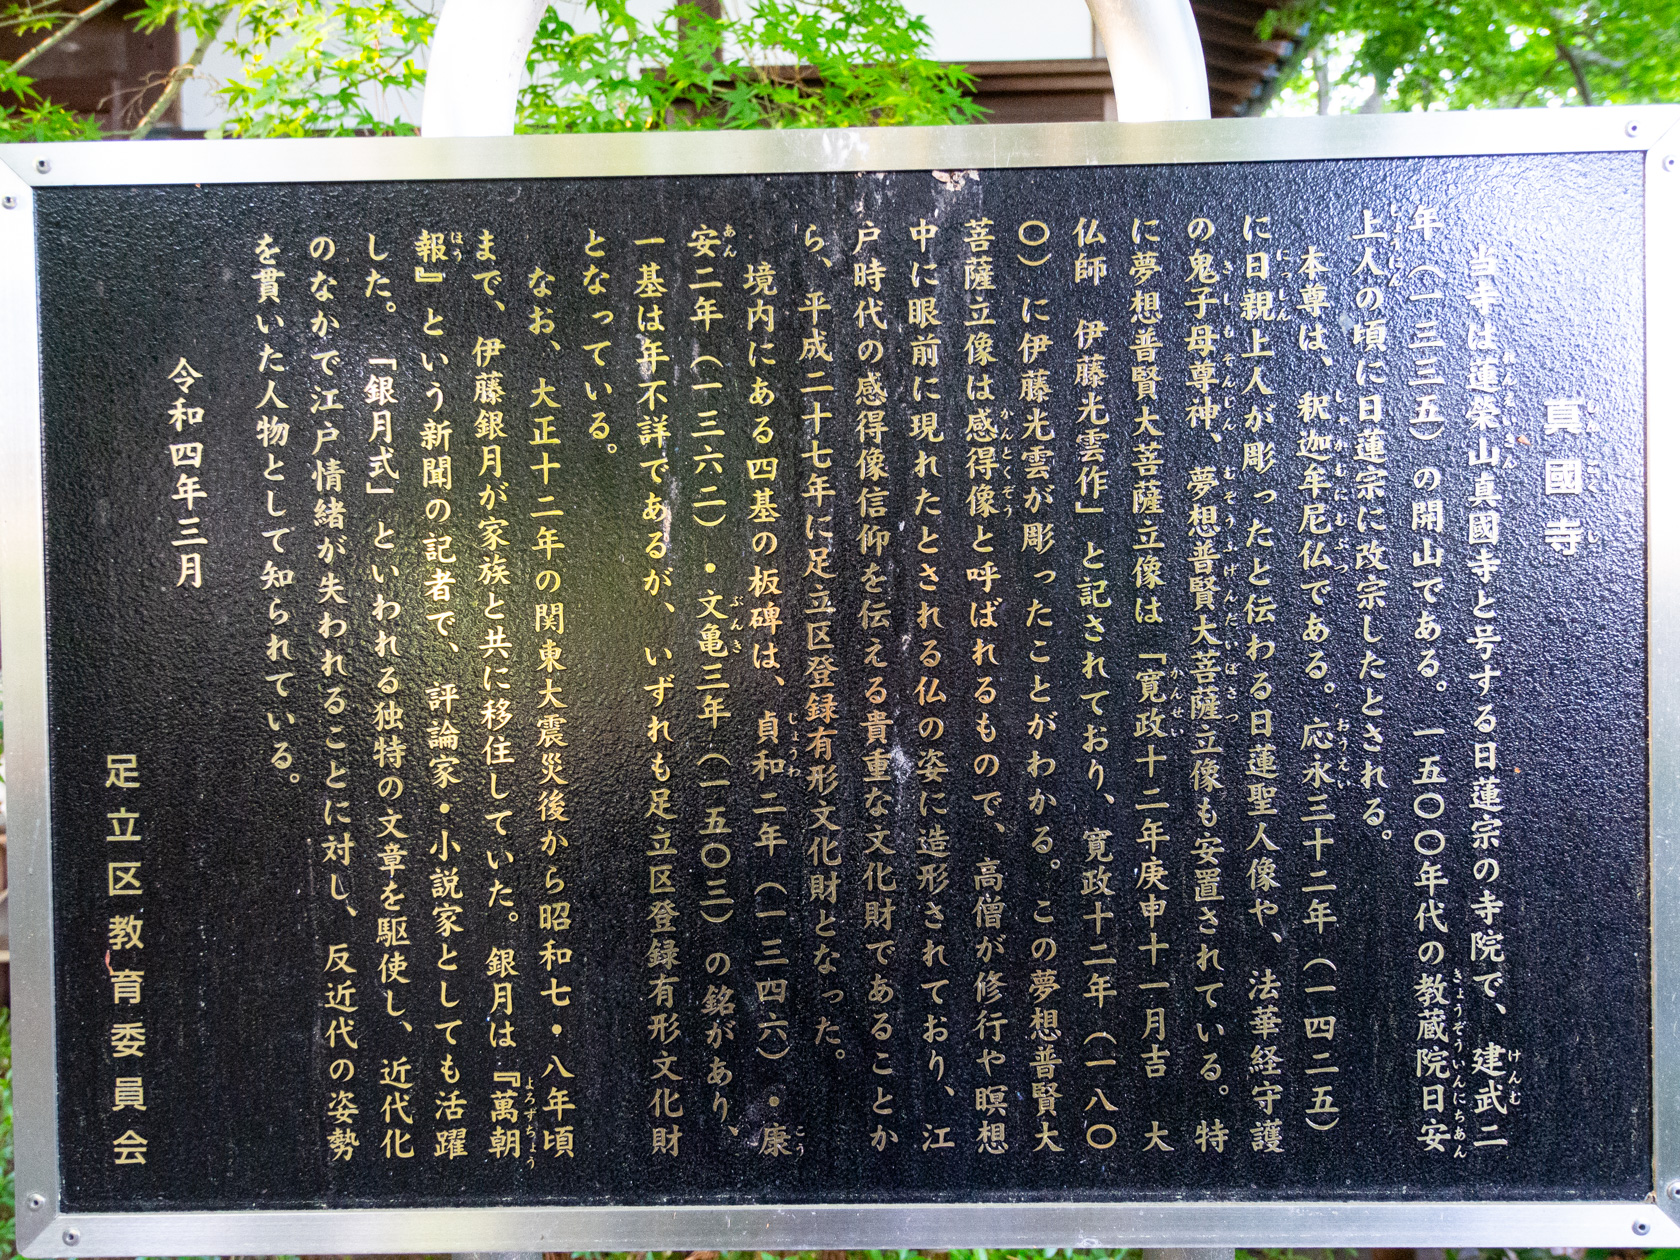 真國寺
当寺は蓮榮山真國寺と号する日蓮宗の寺院で、建武二
年（一三三五）の開山である。一五〇〇年代の教蔵院日安
上人の頃に日蓮宗に改宗したとされる。
本尊は、釈迦牟尼仏である。応永三十二年（一四二五）
に日親上人が彫ったと伝わる日蓮聖人像や、法華経守護
の鬼子母尊神、夢想普賢大菩薩立像も安置されている。特
に夢想普賢大菩薩立像は「寛政十二年庚申十一月吉　大
仏師　伊藤光雲作」と記されており、寛政十二年（一八〇
〇）に伊藤光雲が彫ったことがわかる。この夢想普賢大
菩薩立像は感得像と呼ばれるもので、高僧が修行や瞑想
中に眼前に現れたとされる仏の姿に造形されており、江
戸時代の感得像信仰を伝える貴重な文化財であることか
ら、平成二十七年に足立区登録有形文化財となった。
境内にある四基の板碑は、貞和二年（一三四六）・康
安二年（一三六二）・文亀三年（一五〇三）の銘があり、
一基は年不詳であるが、いずれも足立区登録有形文化財
となっている。
なお、大正十二年の関東大震災後から昭和七・八年頃
まで、伊藤銀月が家族と共に移住していた。銀月は『萬朝
報』という新聞の記者で、評論家・小説家としても活躍
した。「銀月式」といわれる独特の文章を駆使し、近代化
のなかで江戸情緒が失われることに対し、反近代の姿勢
を貫いた人物として知られている。
令和四年三月
足立区教育委員会